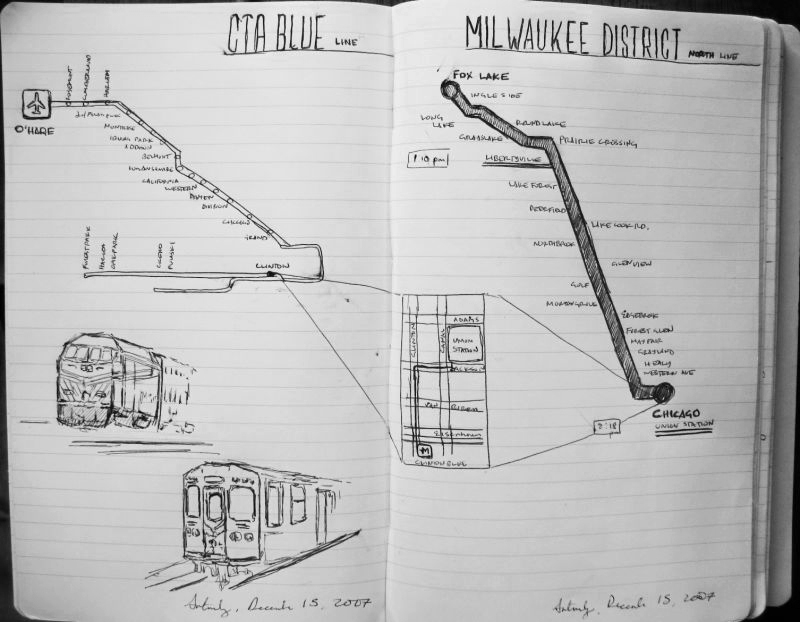 CTA BLUE LINE
ROSEMONT
CUMBERLAND
HARLEM
O'HARE
MONTROSE
IRVING PARK
ADDISON
BELMONT
CALIFORNIA
WESTERN
DAMEN
DIVISION
CHICAGO
GRAND
FOREST PARK
HARLEM
OAK PARK
CICERO
PULASKI
CLINTON
Saturday, December 15, 2007
MILWAUKEE DISTRICT NORTH LINE
FOX LAKE
INGLESIDE
LONG LAKE
ROUND LAKE
GRAYSLAKE
PRAIRIE CROSSING
1:10 pm
LIBERTYVILLE
LAKE FOREST
DEERFIELD
LAKE COOK RD.
NORTHBROOK
GLENVIEW
GOLF
MORTON GROVE
EDGEBROOK
FOREST GLEN
MAYFAIR
GRAYLAND
HEALY
WESTERN AVE
CHICAGO
UNION STATION
2:18
ADAMS
CLINTON
CANAL
UNION STATION
JACKSON
VAN BUREN
Eisenhower
M
CLINTON BLUE
Saturday, December 15, 2007